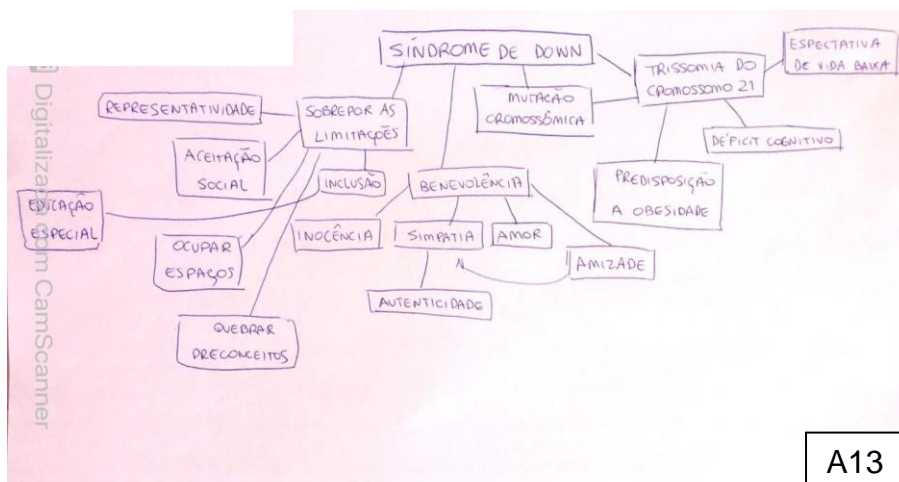 SÍNDROME DE DOWN
ESPECTATIVA
DE VIDA BAIXA
TRISSOMIA DO
CROMOSSOMO 21
MUTAÇÃO
CROMOSSÔMICA
DÉFICIT COGNITIVO
PREDISPOSIÇÃO
A OBESIDADE
REPRESENTATIVIDADE
SOBREPOR AS
LIMITAÇÕES
ACEITAÇÃO
SOCIAL
INCLUSÃO
EDUCAÇÃO
ESPECIAL
OCUPAR
ESPAÇOS
QUEBRAR
PRECONCEITOS
BENEVOLÊNCIA
INOCÊNCIA
SIMPATIA
AMOR
AMIZADE
AUTENTICIDADE
Digitalizada com CamScanner
A13